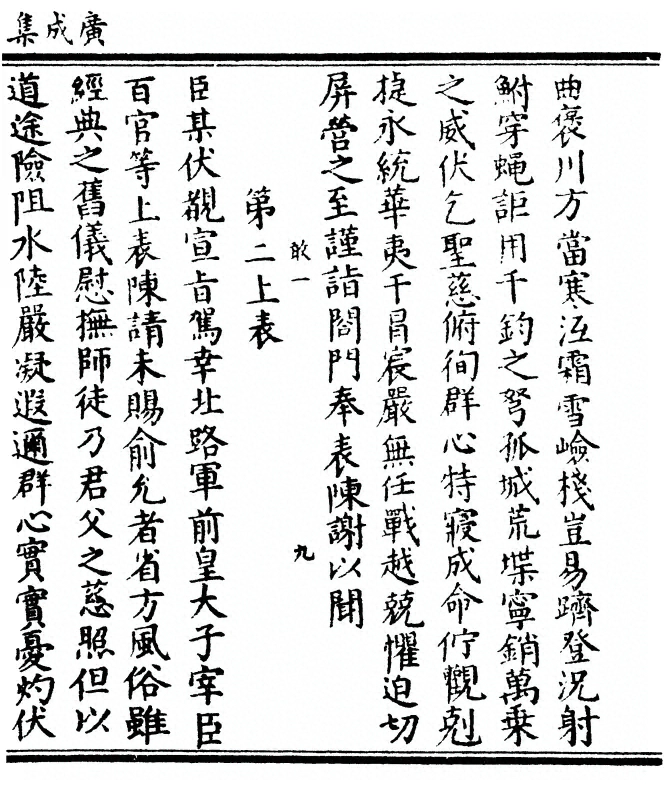 廣成集
曲褒川方當寒沍霜雪嶮棧豈易躋登況射
鮒穿蠅詎用千鈞之弩孤城荒堞寧銷萬乗
之威伏乞聖慈俯徇群心特寢成命佇觀剋
捷永統華夷干冒宸嚴無任戰越兢懼迫切
屏營之至謹詣閤門奉表陳謝以聞
敢一
九
第二上表
臣某伏覩宣旨駕幸北路軍前皇大子宰臣
百官等上表陳請未賜俞允者省方風俗雖
經典之舊儀慰撫師徒乃君父之慈照但以
道途險阻水陸嚴凝遐邇群心實實憂灼伏